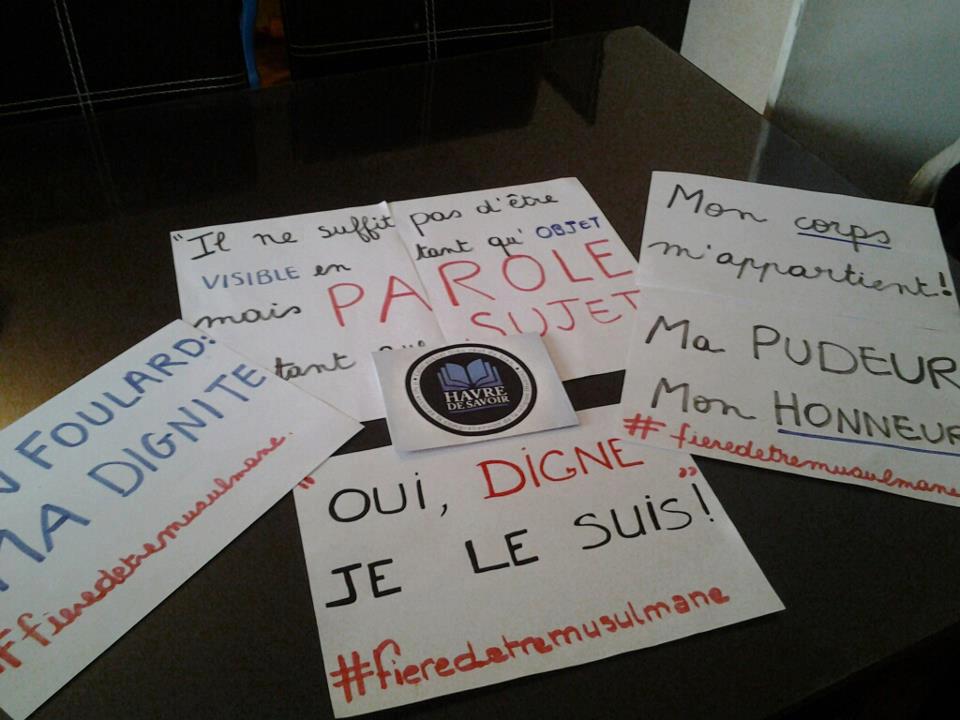 "Il ne suffit pas d'être
VISIBLE en tant qu' OBJET
mais PAROLE
tant SUJET
Mon corps
m'appartient!
Ma PUDEUR
Mon HONNEUR
#fieredetremusulmane
FOULARD:
MA DIGNITE
#fieredetremusulmane.
HAVRE
DE SAVOIR
"OUI, DIGNE"
JE LE SUIS!
#fieredetremusulmane